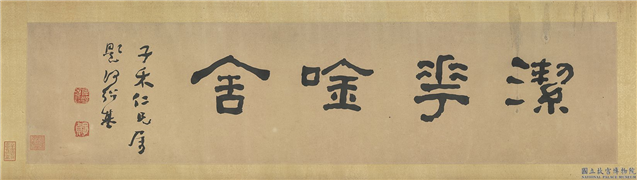 潔華唫舍
子禾仁兄屬
題何紹基
國立故宮博物院
NATIONAL PALACE MUSEUM